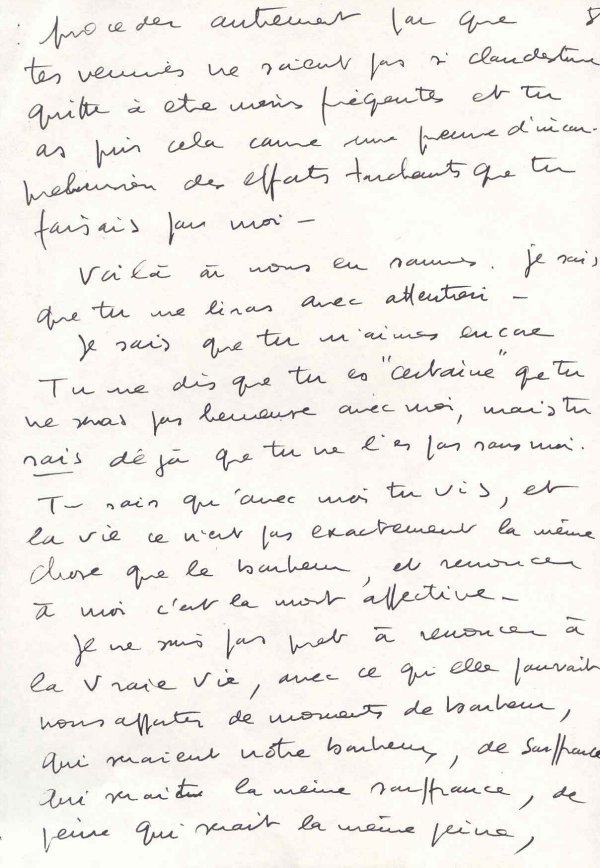 proceder autrement par que 5
tes venues ne soient pas si clandestines
quitte à etre moins fréqentes et tu
as pris cela comme une preuve d'incom-
prehension des efforts touchants que tu
faisais pour moi -
Voilà où nous en sommes. je sais
que tu me liras avec attention -
Je sais que tu m'aimes encore
Tu me dis que tu es "certaine" que tu
ne seras pas heureuse avec moi, mais tu
sais déjà que tu ne l'es pas sans moi.
Tu sais qu'avec moi tu vis, et
la vie ce n'est pas exactement la même
chose que le bonheur, et renoncer
à moi c'est la mort affective -
Je ne suis pas pret à renoncer à
la vraie vie, avec ce qu'elle pouvait
nous apporter de moments de bonheur,
qui seraient notre bonheur, de souffrance
qui serait la même souffrance, de
peine qui serait la même peine,